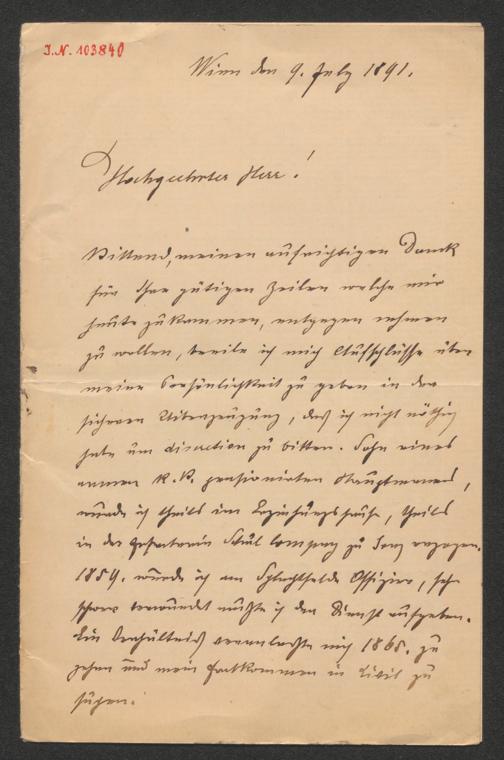 I.N. 103840
Wien den 9. July 1891.
Hochgeehrter Herr!
Bittend, meinen aufrichtigen Dank
für Ihre gütigen Zeilen welche mir
heute zukammen, entgegen nehmen
zu wollen, beeile ich mich Aufschlüsse über
meine Persönlichkeit zu geben in der
sicheren Uiberzeugung, daß ich nicht nöthig
habe um discretion zu bitten. Sohn eines
armen k.k. pensionirten Hauptmannes,
wurde ich theils im Erziehungshause, theils
in der Schul Compagn zu erzogen.
1859. wurde ich am Schlachtfelde Offizier, sehr
schwer verwundet mußte ich den Dienst aufgeben.
Ein Verhältniß veranlaßte mich 1868. zu
gehen und mein Fortkommen in Civil zu
suchen.